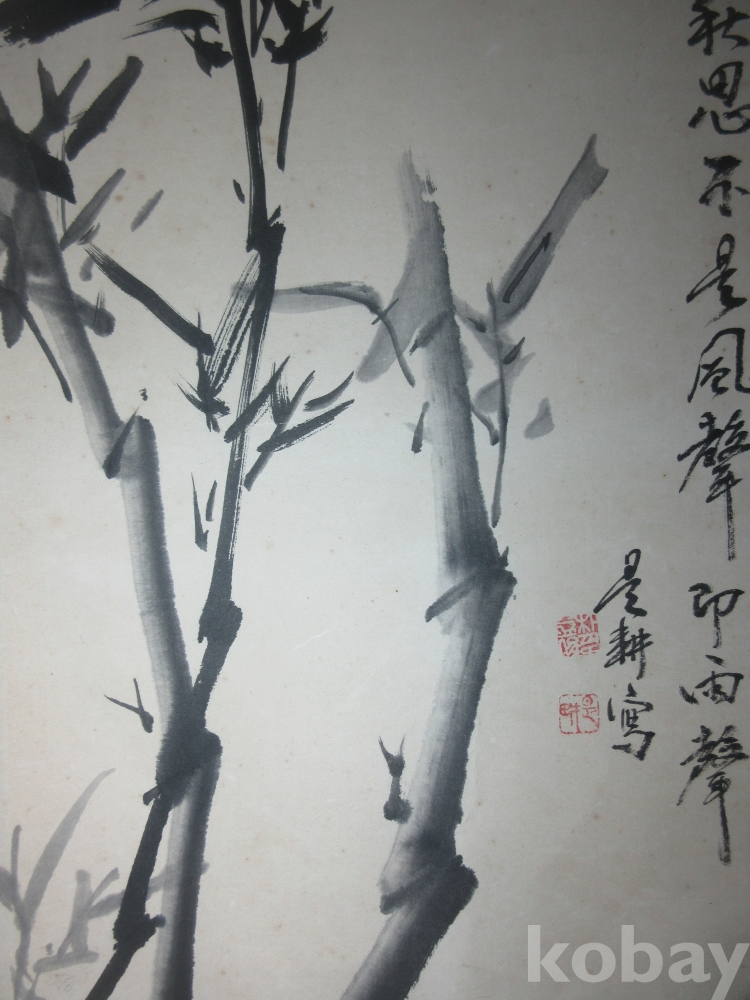 秋思不是風聲即雨聲
是耕寫
是耕
kobay